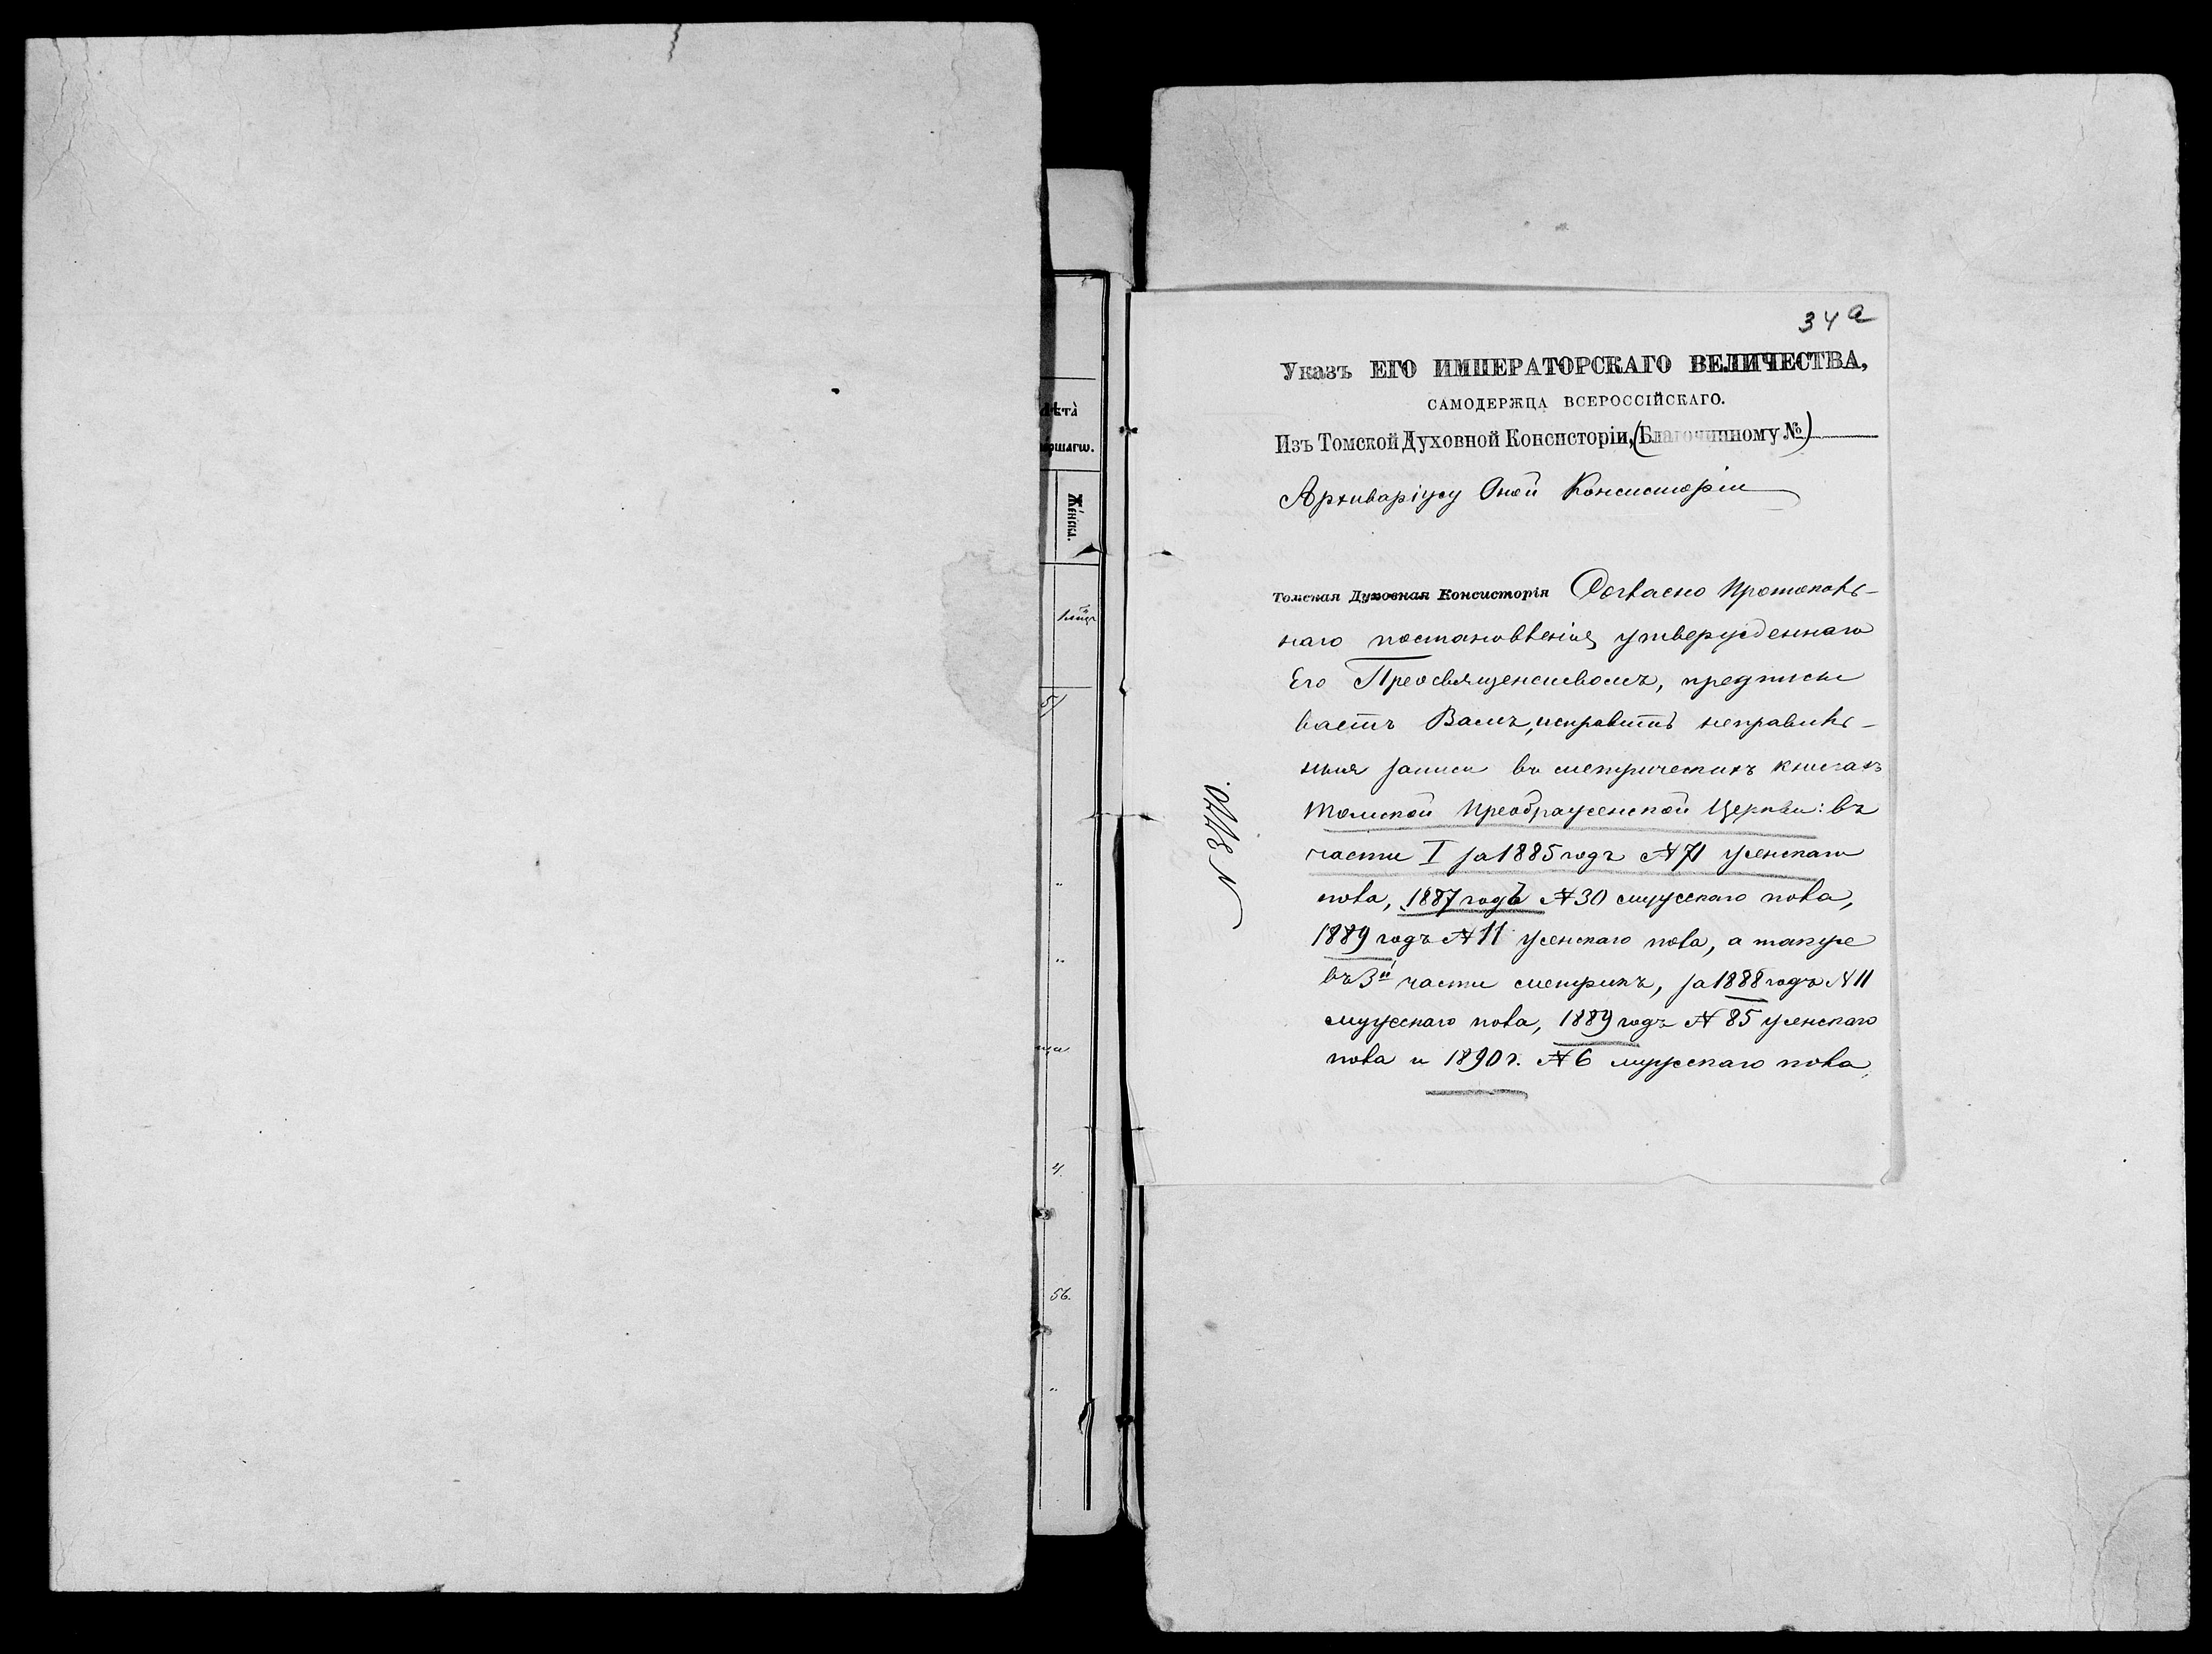 лѣта̀
ршагѡ.
Же́нска.
51
4.
56.
34а
Указъ ЕГО ИМПЕРАТОРСКАГО ВЕЛИЧЕСТВА,
САМОДЕРЖЦА ВСЕРОССІЙСКАГО.
Изъ Томской Духовной Консисторіи, (Благочинному №)
Архиваріусу Оной Консисторіи
Томская Духовная Консисторія Согласно Протоколь-
наго постановленія, утвержденнаго
Его Преосвященствомъ, предписы
ваетъ Вамъ, исправить неправиль-
ныя записи въ метрическихъ книгахъ
Томской Преображенской Церкви: въ
части I за 1885 годъ № 71 женскаго
пола, 1887 годъ № 30 мужескаго пола,
1889 годъ № 11 женскаго пола, а также
въ 3й части метрикъ, за 1888 годъ № 11
мужескаго пола, 1889 годъ № 85 женскаго
пола и 1890 г. № 6 мужескаго пола,